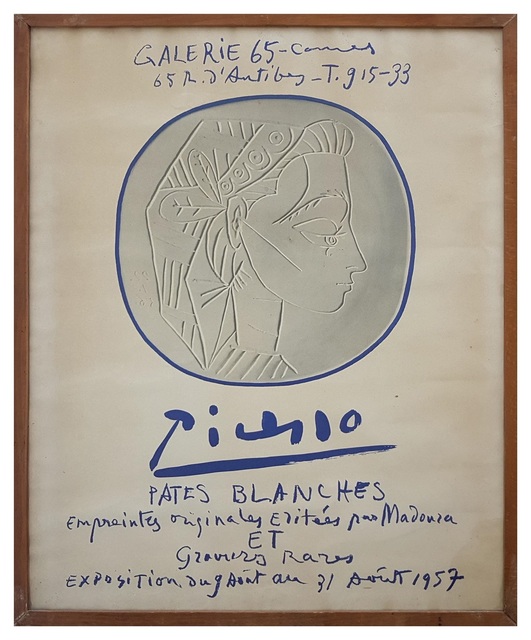 GALERIE 65-Cannes
65 R. D'Antibes - T. 915-33
Picasso
PATES BLANCHES
Empreintes originales Editées par Madoura
ET
Gravures Rares
EXPOSITION. Du 9 Août au 31 Août 1957